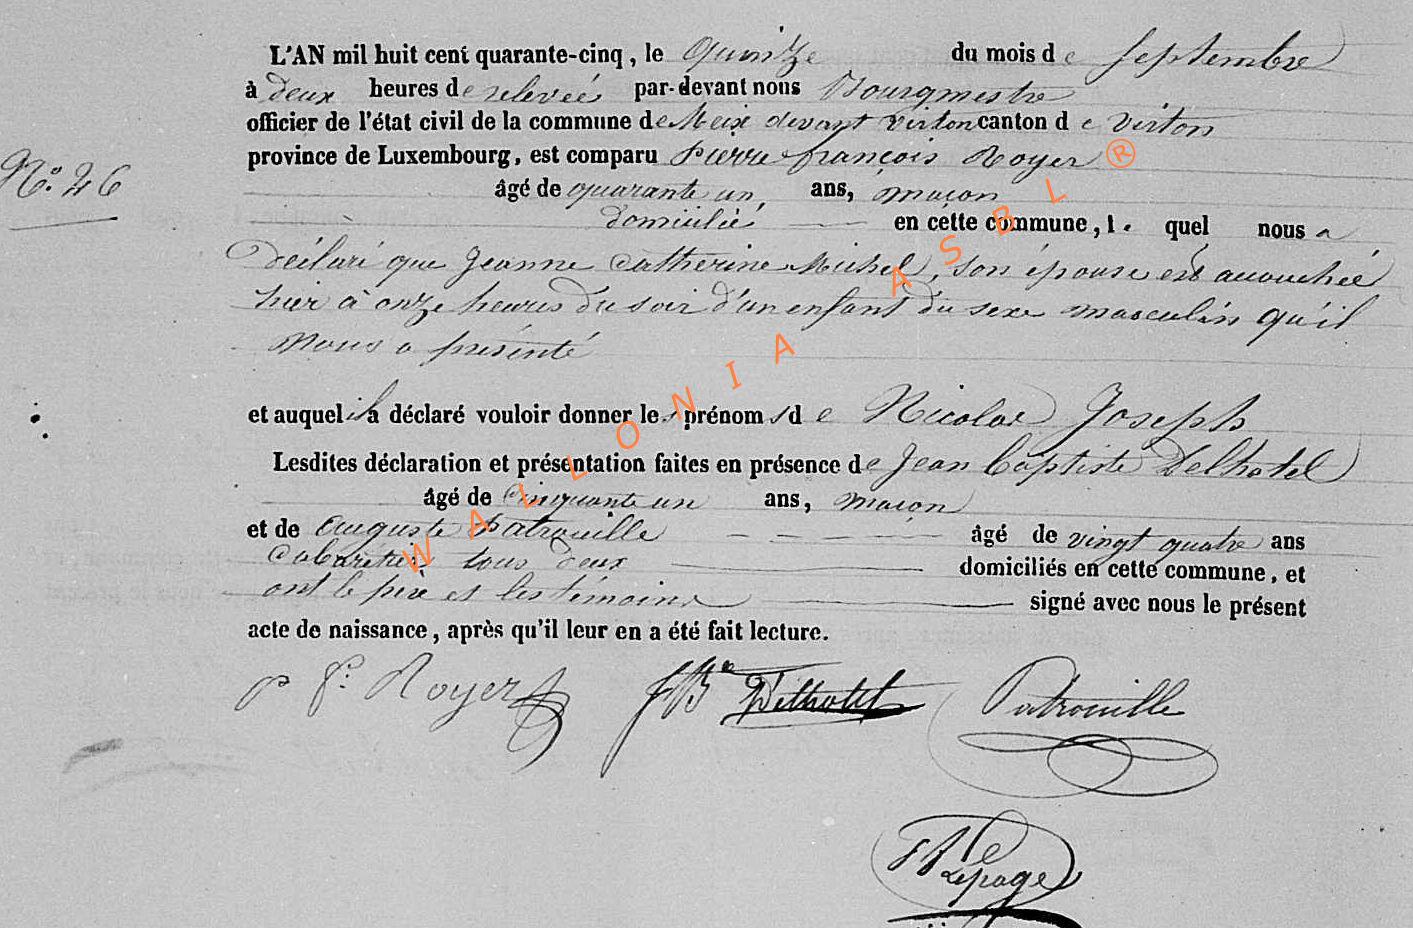 L'AN mil huit cent quarante-cinq, le Quinze du mois de Septembre
à Deux heures de relevée par-devant nous Bourgmestre
officier de l'état civil de la commune de Meix devant virton canton de virton
N° 26
province de Luxembourg, est comparu pierre françois Royer ®
âgé de quarante un, ans, maçon
domicilié en cette commune, le quel nous a
déclaré que Jeanne Catherine Michel, son épouse est accouchée
hier à onze heures du soir d'un enfant du sexe masculin qu'il
nous a présenté
et auquel il a déclaré vouloir donner les prénoms de Nicolas Joseph
Lesdites déclaration et présentation faites en présence de Jean Baptiste Delhotel
âgé de Cinquante un ans, maçon
et de Auguste patrouille âgé de vingt quatre ans
Cabaretier tous deux domiciliés en cette commune, et
ont le père et les témoins signé avec nous le présent
acte de naissance, après qu'il leur en a été fait lecture.
p f. Royer JBte Delhotel Patrouille
Lepage
WALLONIA ASBL